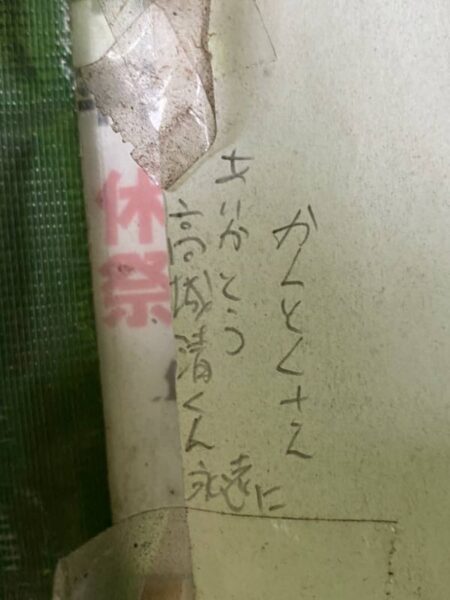 かんとくさん
ありがとう
高城清くん
永遠に
休祭